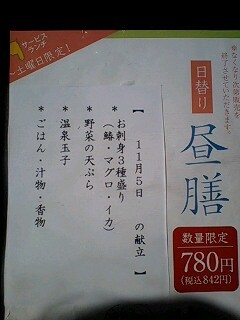 サービス
ランチ
～土曜日限定！
※なくなり次第販売を
終了させていただきます。
日替り
昼膳
数量限定
780円
(税込842円)
【 11月5日 の献立 】
＊お刺身３種盛り
（鰆・マグロ・イカ）
＊野菜の天ぷら
＊温泉玉子
＊ごはん・汁物・香物